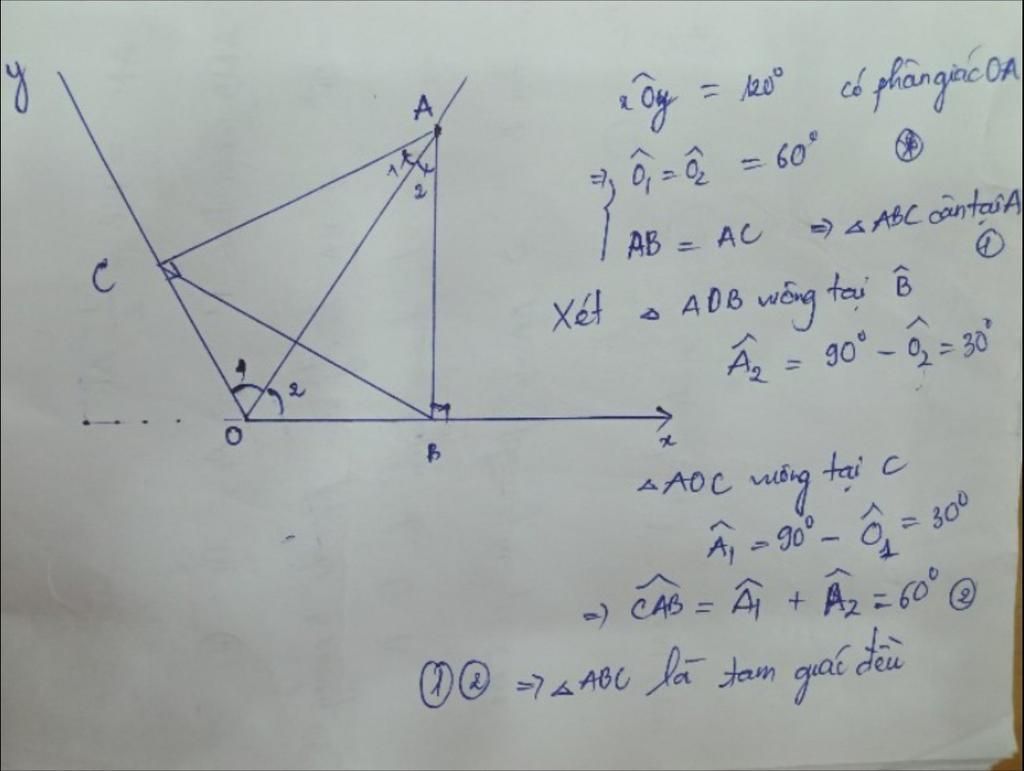 y
A
1 2
C
1 2
O
B
x
xÔy = 120° có phân giác OA
⇒ { Ô₁ = Ô₂ = 60° (*)
AB = AC ⇒ △ ABC cân tại A
①
Xét △ AOB vuông tại B̂
Â₂ = 90° − Ô₂ = 30°
△ AOC vuông tại C
Â₁ = 90° − Ô₁ = 30°
⇒ CÂB = Â₁ + Â₂ = 60° ②
① ② ⇒ △ ABC là tam giác đều